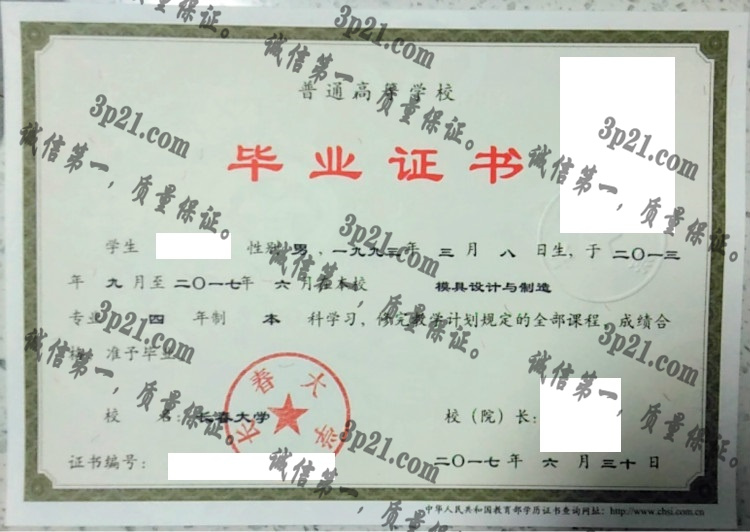 普通高等学校
毕业证书
学生 性别 男 ，一九九三年 三 月 八 日生，于 二〇一三
年 九 月至 二〇一七年 六 月在本校 模具设计与制造
专业 四 年制 本 科学习，修完教学计划规定的全部课程，成绩合
格，准予毕业
长春大学
校 名：长春大学 校（院）长：
证书编号： 二〇一七 年 六 月 三十 日
中华人民共和国教育部学历证书查询网址：http://www.chsi.com.cn
3p21.com
诚信第一，质量保证。
3p21.com
诚信第一，质量保证。
3p21.com
诚信第一，质量保证。
3p21.com
诚信第一，质量保证。
3p21.com
诚信第一，质量保证。
3p21.com
诚信第一，质量保证。
3p21.com
诚信第一，质量保证。
3p21.com
诚信第一，质量保证。
质量保证。